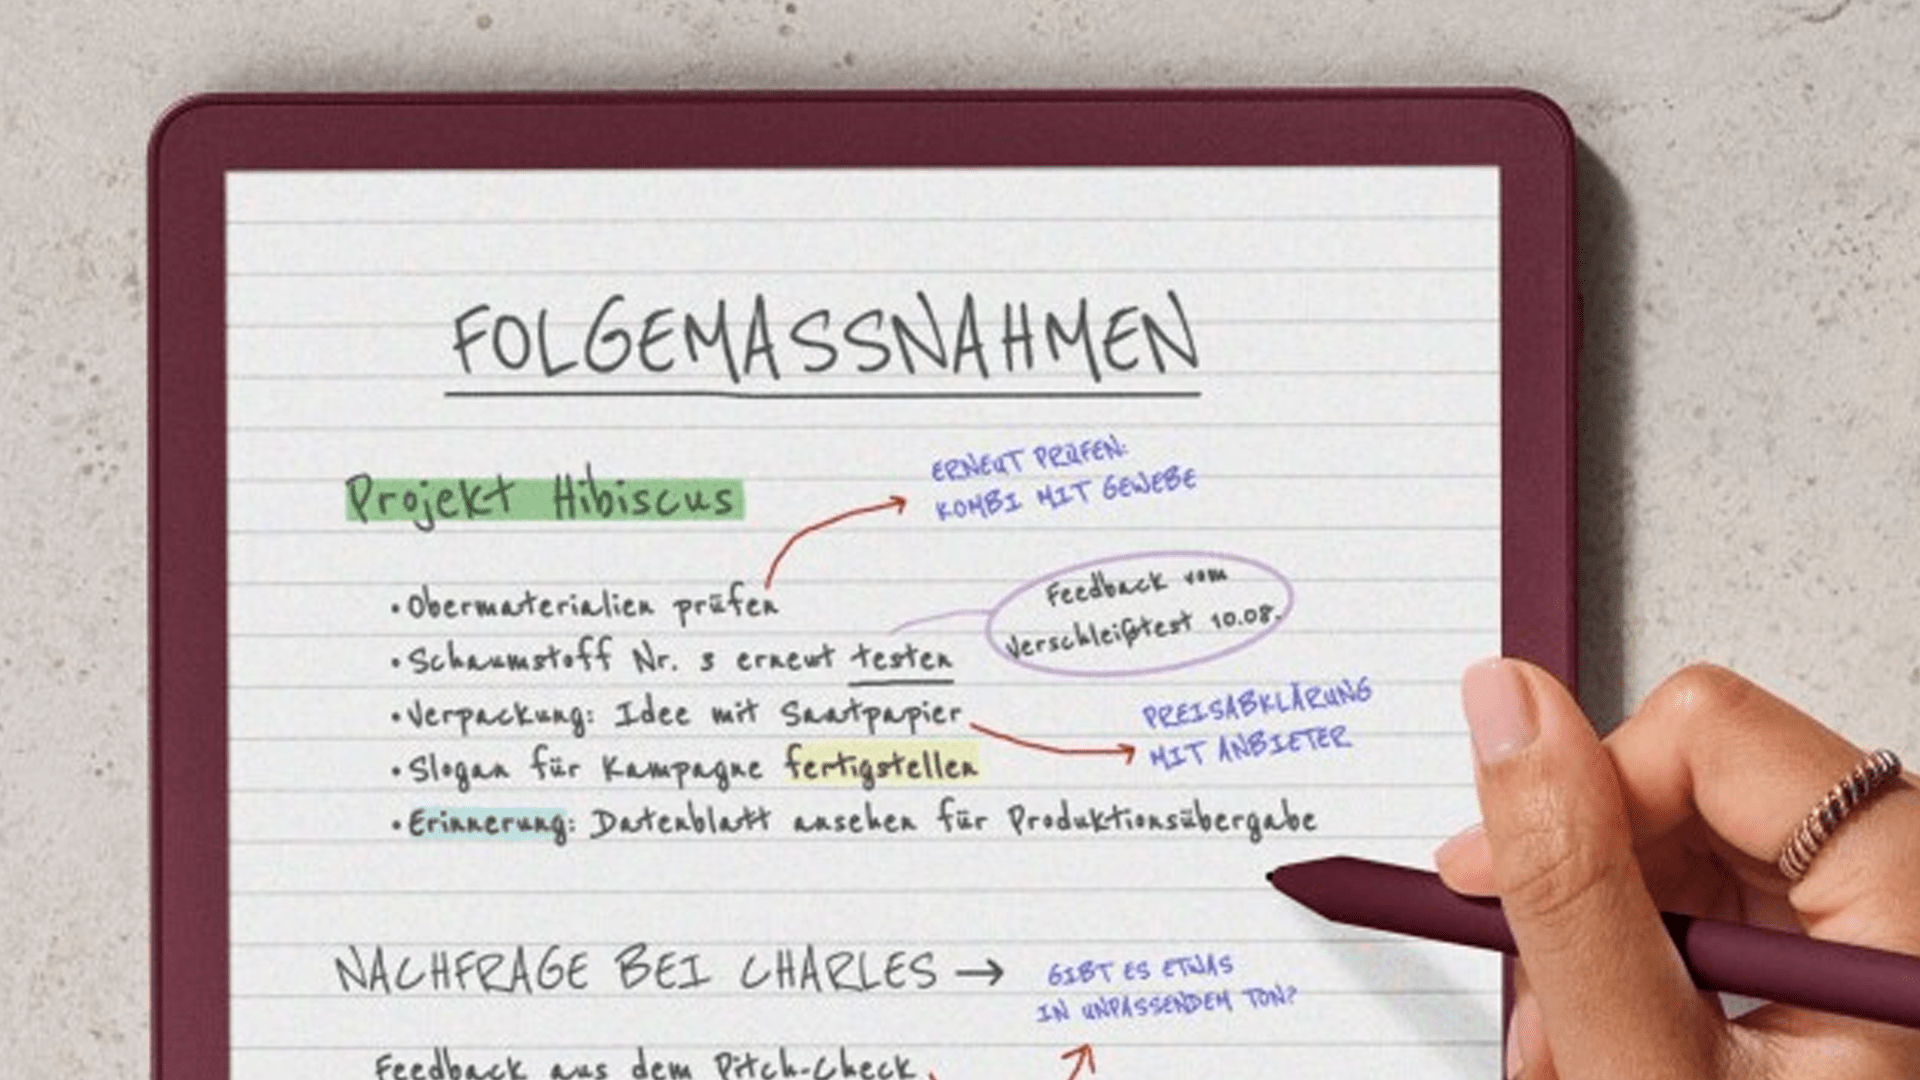 FOLGEMASSNAHMEN
Projekt Hibiscus
ERNEUT PRÜFEN:
KOMBI MIT GEWEBE
• Obermaterialien prüfen
Feedback vom
Verschleißtest 10.08.
• Schaumstoff Nr. 3 erneut testen
• Verpackung: Idee mit Saatpapier
PREISABKLÄRUNG
MIT ANBIETER
• Slogan für Kampagne fertigstellen
• Erinnerung: Datenblatt ansehen für Produktionsübergabe
NACHFRAGE BEI CHARLES →
GIBT ES ETWAS
IN UNPASSENDEM TON?
Feedback aus dem Pitch-Check